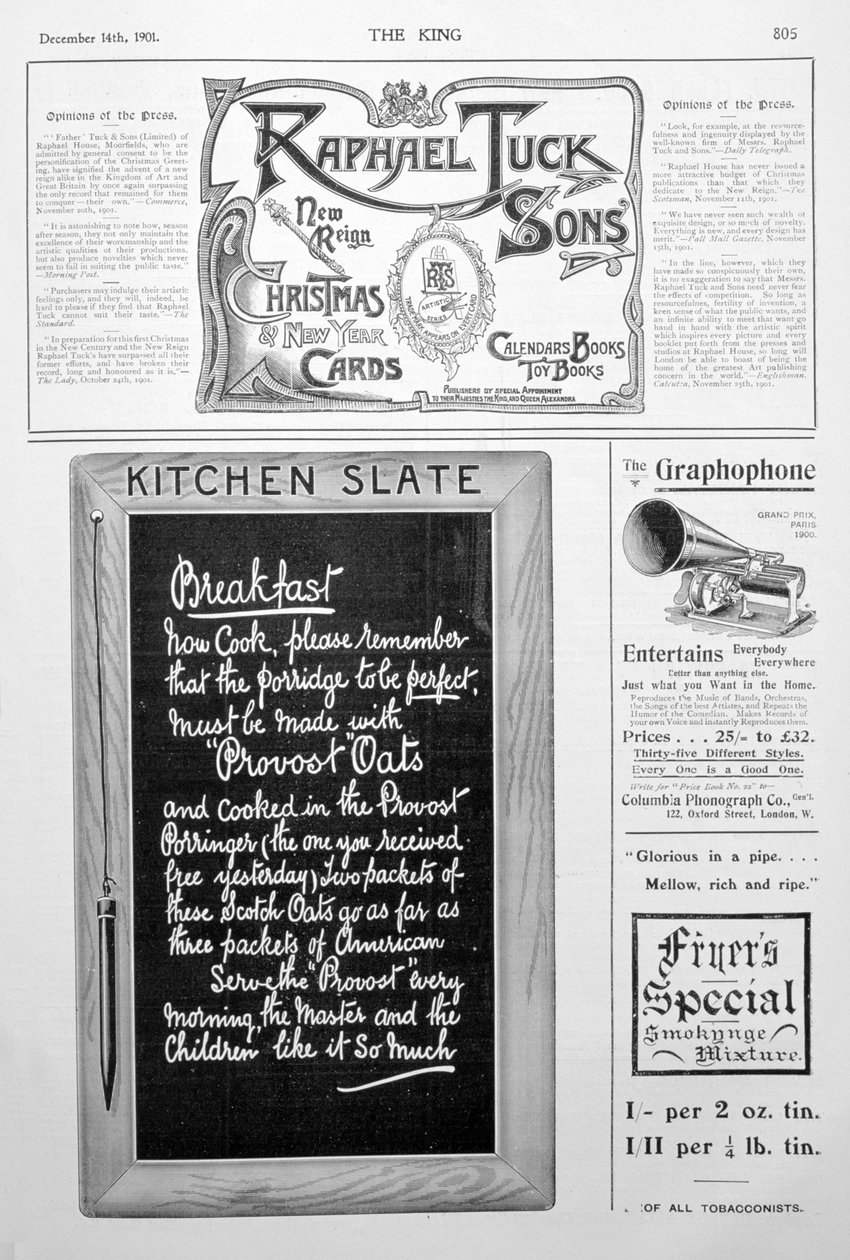 December 14th, 1901.
THE KING
805
Opinions of the Press.
"'Father' Tuck & Sons (Limited) of
Raphael House, Moorfields, who are
admitted by general consent to be the
personification of the Christmas Greet-
ing, have signified the advent of a new
reign alike in the Kingdom of Art and
Great Britain by once again surpassing
the only record that remained for them
to conquer—their own."—Commerce,
November 20th, 1901.
"It is astonishing to note how, season
after season, they not only maintain the
excellence of their workmanship and the
artistic qualities of their productions,
but also produce novelties which never
seem to fail in suiting the public taste."
—Morning Post.
"Purchasers may indulge their artistic
feelings only, and they will, indeed, be
hard to please if they find that Raphael
Tuck cannot suit their taste."—The
Standard.
"In preparation for this first Christmas
in the New Century and the New Reign
Raphael Tuck's have surpassed all their
former efforts, and have broken their
record, long and honoured as it is,"—
The Lady, October 24th, 1901.
RAPHAEL TUCK
& SONS
New
Reign
CHRISTMAS
& NEW YEAR
CARDS
RTS
ARTISTIC
SERIES
TRADE MARK APPEARS ON EVERY CARD
CALENDARS BOOKS
TOY BOOKS
PUBLISHERS BY SPECIAL APPOINTMENT
TO THEIR MAJESTIES THE KING, AND QUEEN ALEXANDRA
Opinions of the Press.
"Look, for example, at the resource-
fulness and ingenuity displayed by the
well-known firm of Messrs. Raphael
Tuck and Sons."—Daily Telegraph.
"Raphael House has never issued a
more attractive budget of Christmas
publications than that which they
dedicate to the New Reign."—The
Scotsman, November 11th, 1901.
"We have never seen such wealth of
exquisite design, or so much of novelty.
Everything is new, and every design has
merit."—Pall Mall Gazette, November
15th, 1901.
"In the line, however, which they
have made so conspicuously their own,
it is no exaggeration to say that Messrs.
Raphael Tuck and Sons need never fear
the effects of competition. So long as
resourcefulnes, fertility of invention, a
keen sense of what the public wants, and
an infinite ability to meet that want go
hand in hand with the artistic spirit
which inspires every picture and every
booklet put forth from the presses and
studios at Raphael House, so long will
London be able to boast of being the
home of the greatest Art publishing
concern in the world."—Englishman.
Calcutta, November 25th, 1901.
KITCHEN SLATE
Breakfast
Now Cook, please remember
that the porridge to be perfect,
must be made with
"Provost" Oats
and cooked in the Provost
Porringer (the one you received
free yesterday) Two packets of
these Scotch Oats go as far as
three packets of American
Serve the "Provost" every
morning, the Master and the
Children like it So Much
The Graphophone
GRAND PRIX,
PARIS
1900.
Entertains Everybody
Everywhere
better than anything else.
Just what you Want in the Home.
Reproduces the Music of Bands, Orchestras,
the Songs of the best Artistes, and Repeats the
Humor of the Comedian. Makes Records of
your own Voice and instantly Reproduces them.
Prices . . . 25/= to £32.
Thirty-five Different Styles.
Every One is a Good One.
Write for "Price Book No. 22" to—
Columbia Phonograph Co., Gen'l.
122, Oxford Street, London, W.
"Glorious in a pipe. . . .
Mellow, rich and ripe."
Fryer's
Special
Smokynge
Mixture.
I/- per 2 oz. tin.
I/II per ¼ lb. tin.
OF ALL TOBACCONISTS.